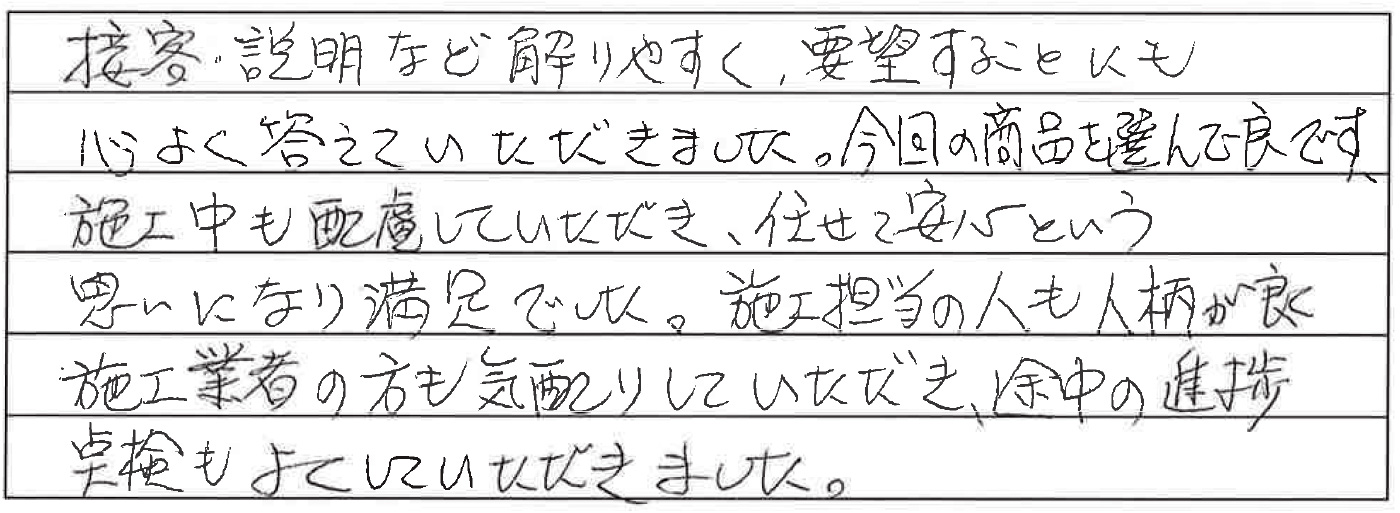 接客・説明など解りやすく、要望することにも
心よく答えていただきました。今回の商品を選んで良です、
施工中も配慮していただき、任せて安心という
思いになり満足でした。施工担当の人も人柄が良く
施工業者の方も気配りしていただき、途中の進捗
点検もよくしていただきました。